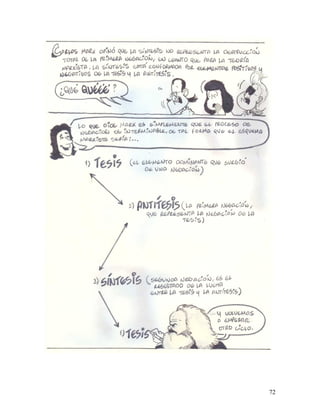 CARLOS MARX OPINÓ QUE LA SÍNTESIS NO REPRESENTA LA DESTRUCCIÓN
TOTAL DE LA PRIMERA NEGACIÓN, EN CUANTO QUE PARA LA TEORÍA
MARXISTA, LA SÍNTESIS ESTÁ CONFORMADA POR ELEMENTOS POSITIVOS Y
NEGATIVOS DE LA TESIS Y LA ANTÍTESIS.
¿QUÉ QUÉÉÉ?
LO QUE DICE MARX ES SIMPLEMENTE QUE EL PROCESO DE
NEGACIÓN ES INTERMINABLE. DE TAL FORMA QUE EL ESQUEMA
MARXISTA SERÍA:...
1) TESIS (EL ELEMENTO DOMINANTE QUE SURGIÓ
DE UNA NEGACIÓN)
2) ANTÍTESIS (LA PRIMERA NEGACIÓN,
QUE REPRESENTA LA NEGACIÓN DE LA
TESIS)
3) SÍNTESIS (SEGUNDA NEGACIÓN, ES EL
RESULTADO DE LA LUCHA
ENTRE LA TESIS Y LA ANTÍTESIS)
Y VOLVEMOS
A EMPEZAR
OTRO CICLO.
1) TESIS
72